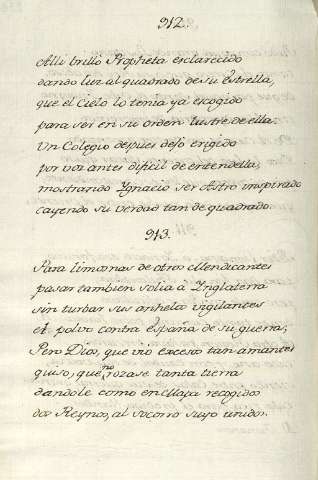 912.
Alli brilló Propheta esclarecido
dando luz al quadrado de su Estrella,
que el Cielo lo tenia ya escogido
para ser en su orden lustre de ella.
Un Colegio depues dejo erigido
por vos antes dificil de entendella,
mostrando Ygnacio ser Astro inspirado
cayendo su verdad tan de quadrado.
913.
Para limosnas de otros Mendicantes
pasar tambien solia á Inglaterra
sin turbar sus anhelos vigilantes
el polvo contra españa de su guerra;
Pero Dios, que vió exceso tan amante
quiso, que no rozase tanta tierra
dandole como en Mapa recogidos
dos Reynos, al socorro suyo unidos.